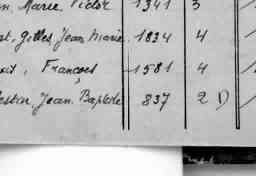 n, Marie Victor 1341 3
st, Gilles Jean Marie 1834 4
oit, François 1581 4
estin, Jean, Baptiste 837 2 D